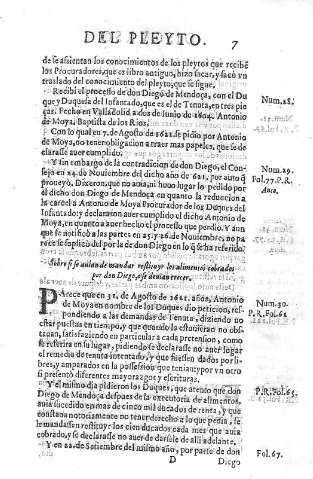 DEL PLEYTO. 7
de se assientan los conocimientos de los pleytos que recibẽ
los Procuradores, que es libro antiguo, hizo sacar, y sacò vn
traslado del conocimiento del pleyto, que se sigue.
Recibi el processo de don Diego de Mendoça, con el Du
que y Duquesa del Infantado, que es el de Tenuta, en tres pie
ças. Fecho en Valladolid a dos de Iunio de 1604. Antonio
de Moya. Baptista de los Rios.
Num. 28.
Con lo qual en 7. de Agosto de 1621. se pidio por Antonio
de Moya, no tener obligacion a traer mas papeles, que se de
clarasse auer cumplido.
Y sin embargo de la contradicion de don Diego, el Con-
sejo en 24. de Nouiembre del dicho año de 621, por auto q̃
proueyò, Dixeron, que no auia, ni huuo lugar lo pedido por
el dicho don Diego de Mendoça en quanto la reduccion a
la carcel a Antonio de Moya Procurador de los Duques del
Infantado; y declararon auer cumplido el dicho Antonio de
Moya, en quanto a auer hecho el processo que perdio. Y aun
que se notificò a las partes en 25. y 26. de Nouiembre, no pa
rece se suplicò del por la de don Diego en lo q̃ se ha referido.
Num. 29.
Fol. 77. P. R.
Auto.
Sobre si se auian de mandar restituyr los alimentos cobrados
por don Diego, y si deuian correr.
PArece que en 31. de Agosto de 1621. años, Antonio
de Moya en nombre de los Duques dio peticion, res-
pondiendo a las demandas de Tenuta, diziendo no
estar puestas en tiempo, y que quando lo estuuieran no obs-
tauan, satisfaziendo en particular a cada pretension, como
se referira en su lugar, pidiendo se declarasse no auer lugar
el remedio de tenuta intentado, y que fuessen dados por li-
bres, y amparados en la possession que tenian; y por vn otro
si presentò diferentes mayorazgos y escrituras.
Num. 30.
P. R. Fol. 61
Y el mismo dia pidieron los Duques, que atento que don
Diego de Mendoça despues de la executoria de alimentos,
auia sucedido en mas de cinco mil ducados de renta, y que
constaua notoriamente no tener derecho a lo que pedia, se
le mandassen restituyr los cien ducados cada mes que auia
cobrado, y se declarasse no auer de darsele de alli adelante.
P. R. Fol. 65.
Y en 22. de Setiembre del mismo año, por parte de don
Fol. 67.
D Diego